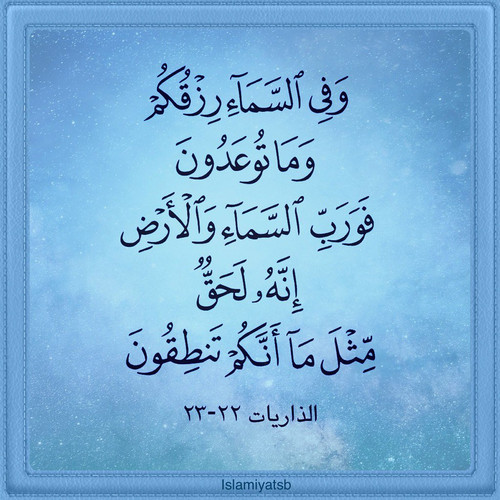 وَفِى ٱلسَّمَآءِ رِزْقُكُمْ
وَمَا تُوعَدُونَ
فَوَرَبِّ ٱلسَّمَآءِ وَٱلْأَرْضِ
إِنَّهُۥ لَحَقٌّ
مِّثْلَ مَآ أَنَّكُمْ تَنطِقُونَ
الذاريات ٢٢-٢٣
Islamiyatsb